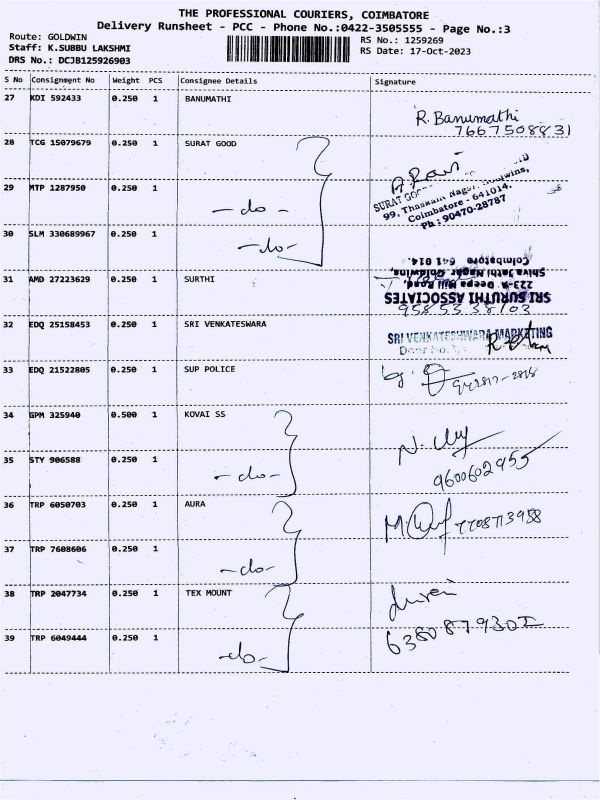 THE PROFESSIONAL COURIERS, COIMBATORE
Delivery Runsheet - PCC - Phone No.:0422-3505555 - Page No.:3
Route: GOLDWIN
RS No.: 1259269
Staff: K.SUBBU LAKSHMI
RS Date: 17-Oct-2023
DRS No.: DCJB125926903
S No Consignment No Weight PCS Consignee Details Signature
27 KDI 592433 0.250 1 BANUMATHI
R. Banumathi
7667508831
28 TCG 15079679 0.250 1 SURAT GOOD
SURAT
29 MTP 1287950 0.250 1
99, Thaskam Nagar, Goldwins,
-do-
Coimbatore - 641014.
Ph : 90470-28787
30 SLM 330689967 0.250 1
-do-
Coimbatore 641 014.
Shiva Jothi Nagar, Goldwins,
31 AMD 27223629 0.250 1 SURTHI
223-A, Deepa Mill Road,
SRI SURUTHI ASSOCIATES
32 EDQ 25158453 0.250 1 SRI VENKATESWARA
SRI VENKATESHWARA MARKETING
Door No.
33 EDQ 21522805 0.250 1 SUP POLICE
34 GPM 325940 0.500 1 KOVAI SS
35 STY 906588 0.250 1
-do-
9600602955
36 TRP 6050703 0.250 1 AURA
7708713958
37 TRP 7608606 0.250 1
-do-
38 TRP 2047734 0.250 1 TEX MOUNT
39 TRP 6049444 0.250 1
-do-